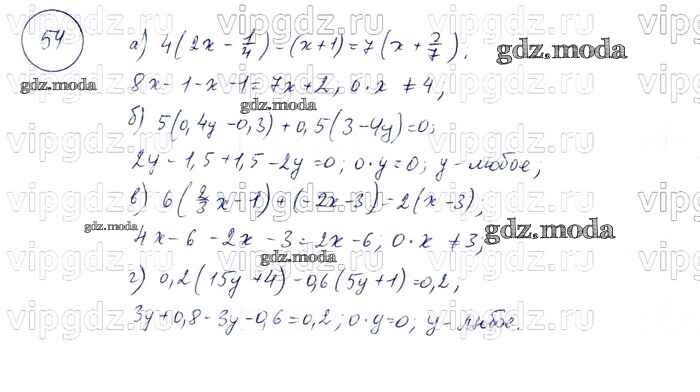 54
а) 4(2x - 1/4) - (x+1) = 7(x + 2/7).
8x - 1 - x - 1 = 7x + 2, 0·x ≠ 4,
б) 5(0,4y - 0,3) + 0,5(3 - 4y) = 0;
2y - 1,5 + 1,5 - 2y = 0; 0·y = 0; y - любое;
в) 6(2/3x - 1) + (-2x - 3) = 2(x - 3);
4x - 6 - 2x - 3 = 2x - 6; 0·x ≠ 3,
г) 0,2(15y + 4) - 0,6(5y + 1) = 0,2;
3y + 0,8 - 3y - 0,6 = 0,2; 0·y = 0; y - любое.
vipgdz.ru vipgdz.ru vipgdz.ru vipgdz.ru
gdz.moda
gdz.moda
gdz.moda
gdz.moda
gdz.moda
gdz.moda